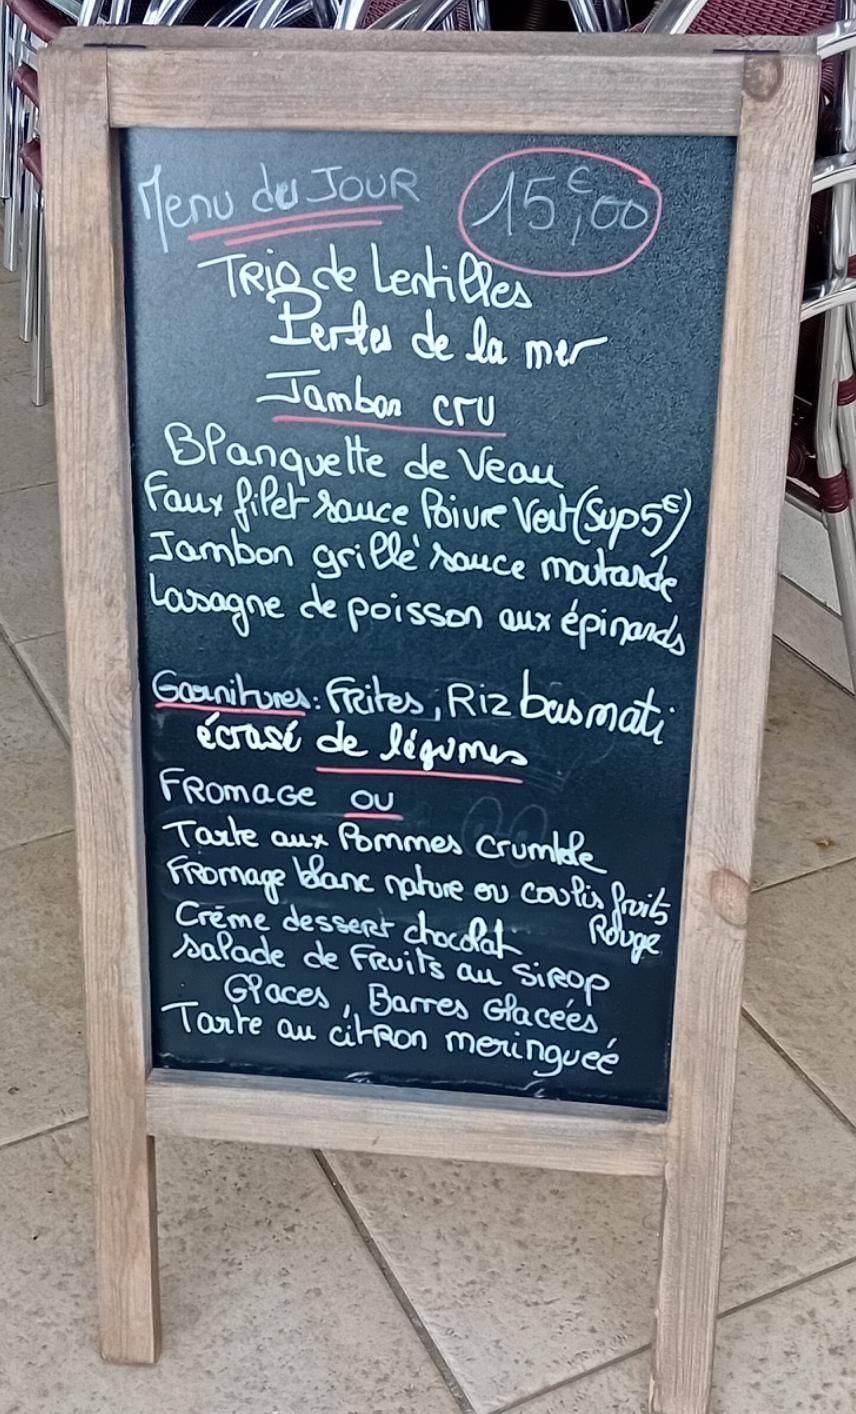 Menu du JOUR 15€,00
Trio de Lentilles
Perles de la mer
Jambon cru
Blanquette de Veau
Faux filet sauce Poivre Vert (Sup 5€)
Jambon grillé sauce moutarde
Lasagne de poisson aux épinards
Garnitures : Frites, Riz basmati
écrasé de légumes
FROMAGE OU
Tarte aux Pommes crumble
Fromage blanc nature ou coulis fruits
Rouge
Créme dessert chocolat
salade de Fruits au SiROP
Glaces, Barres Glacées
Tarte au citron meringueé